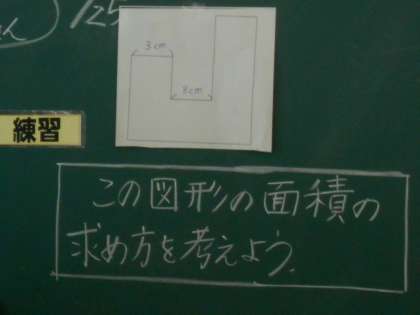 125
3cm
8cm
練習
この図形の面積の
求め方を考えよう。